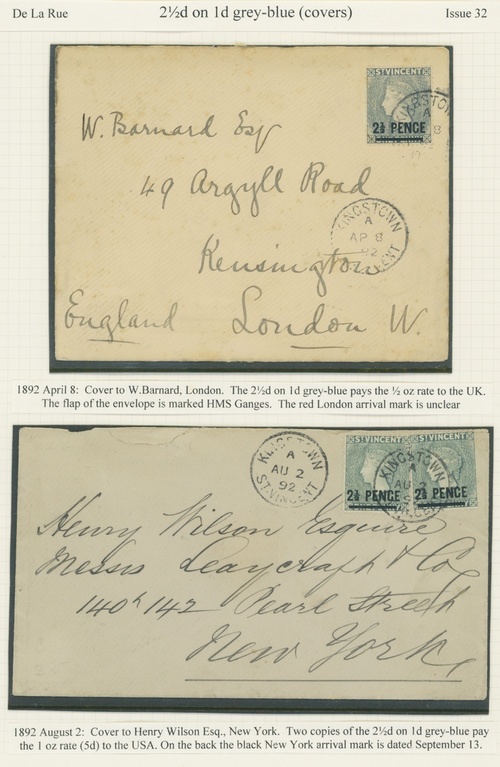 De La Rue
2½d on 1d grey-blue (covers)
Issue 32
ST VINCENT
2½ PENCE
KINGSTOWN
A
8
W. Barnard Esq
49 Argyll Road
Kensington
England London W.
KINGSTOWN
A
AP 8
92
1892 April 8: Cover to W.Barnard, London. The 2½d on 1d grey-blue pays the ½ oz rate to the UK.
The flap of the envelope is marked HMS Ganges. The red London arrival mark is unclear
KINGSTOWN
A
AU 2
92
ST. VINCENT
ST VINCENT
ST VINCENT
2½ PENCE
2½ PENCE
KINGSTOWN
A
AU 2
Henry Wilson Esquire
Messrs Leaycraft & Co
140 & 142 Pearl Street
New York
1892 August 2: Cover to Henry Wilson Esq., New York. Two copies of the 2½d on 1d grey-blue pay
the 1 oz rate (5d) to the USA. On the back the black New York arrival mark is dated September 13.